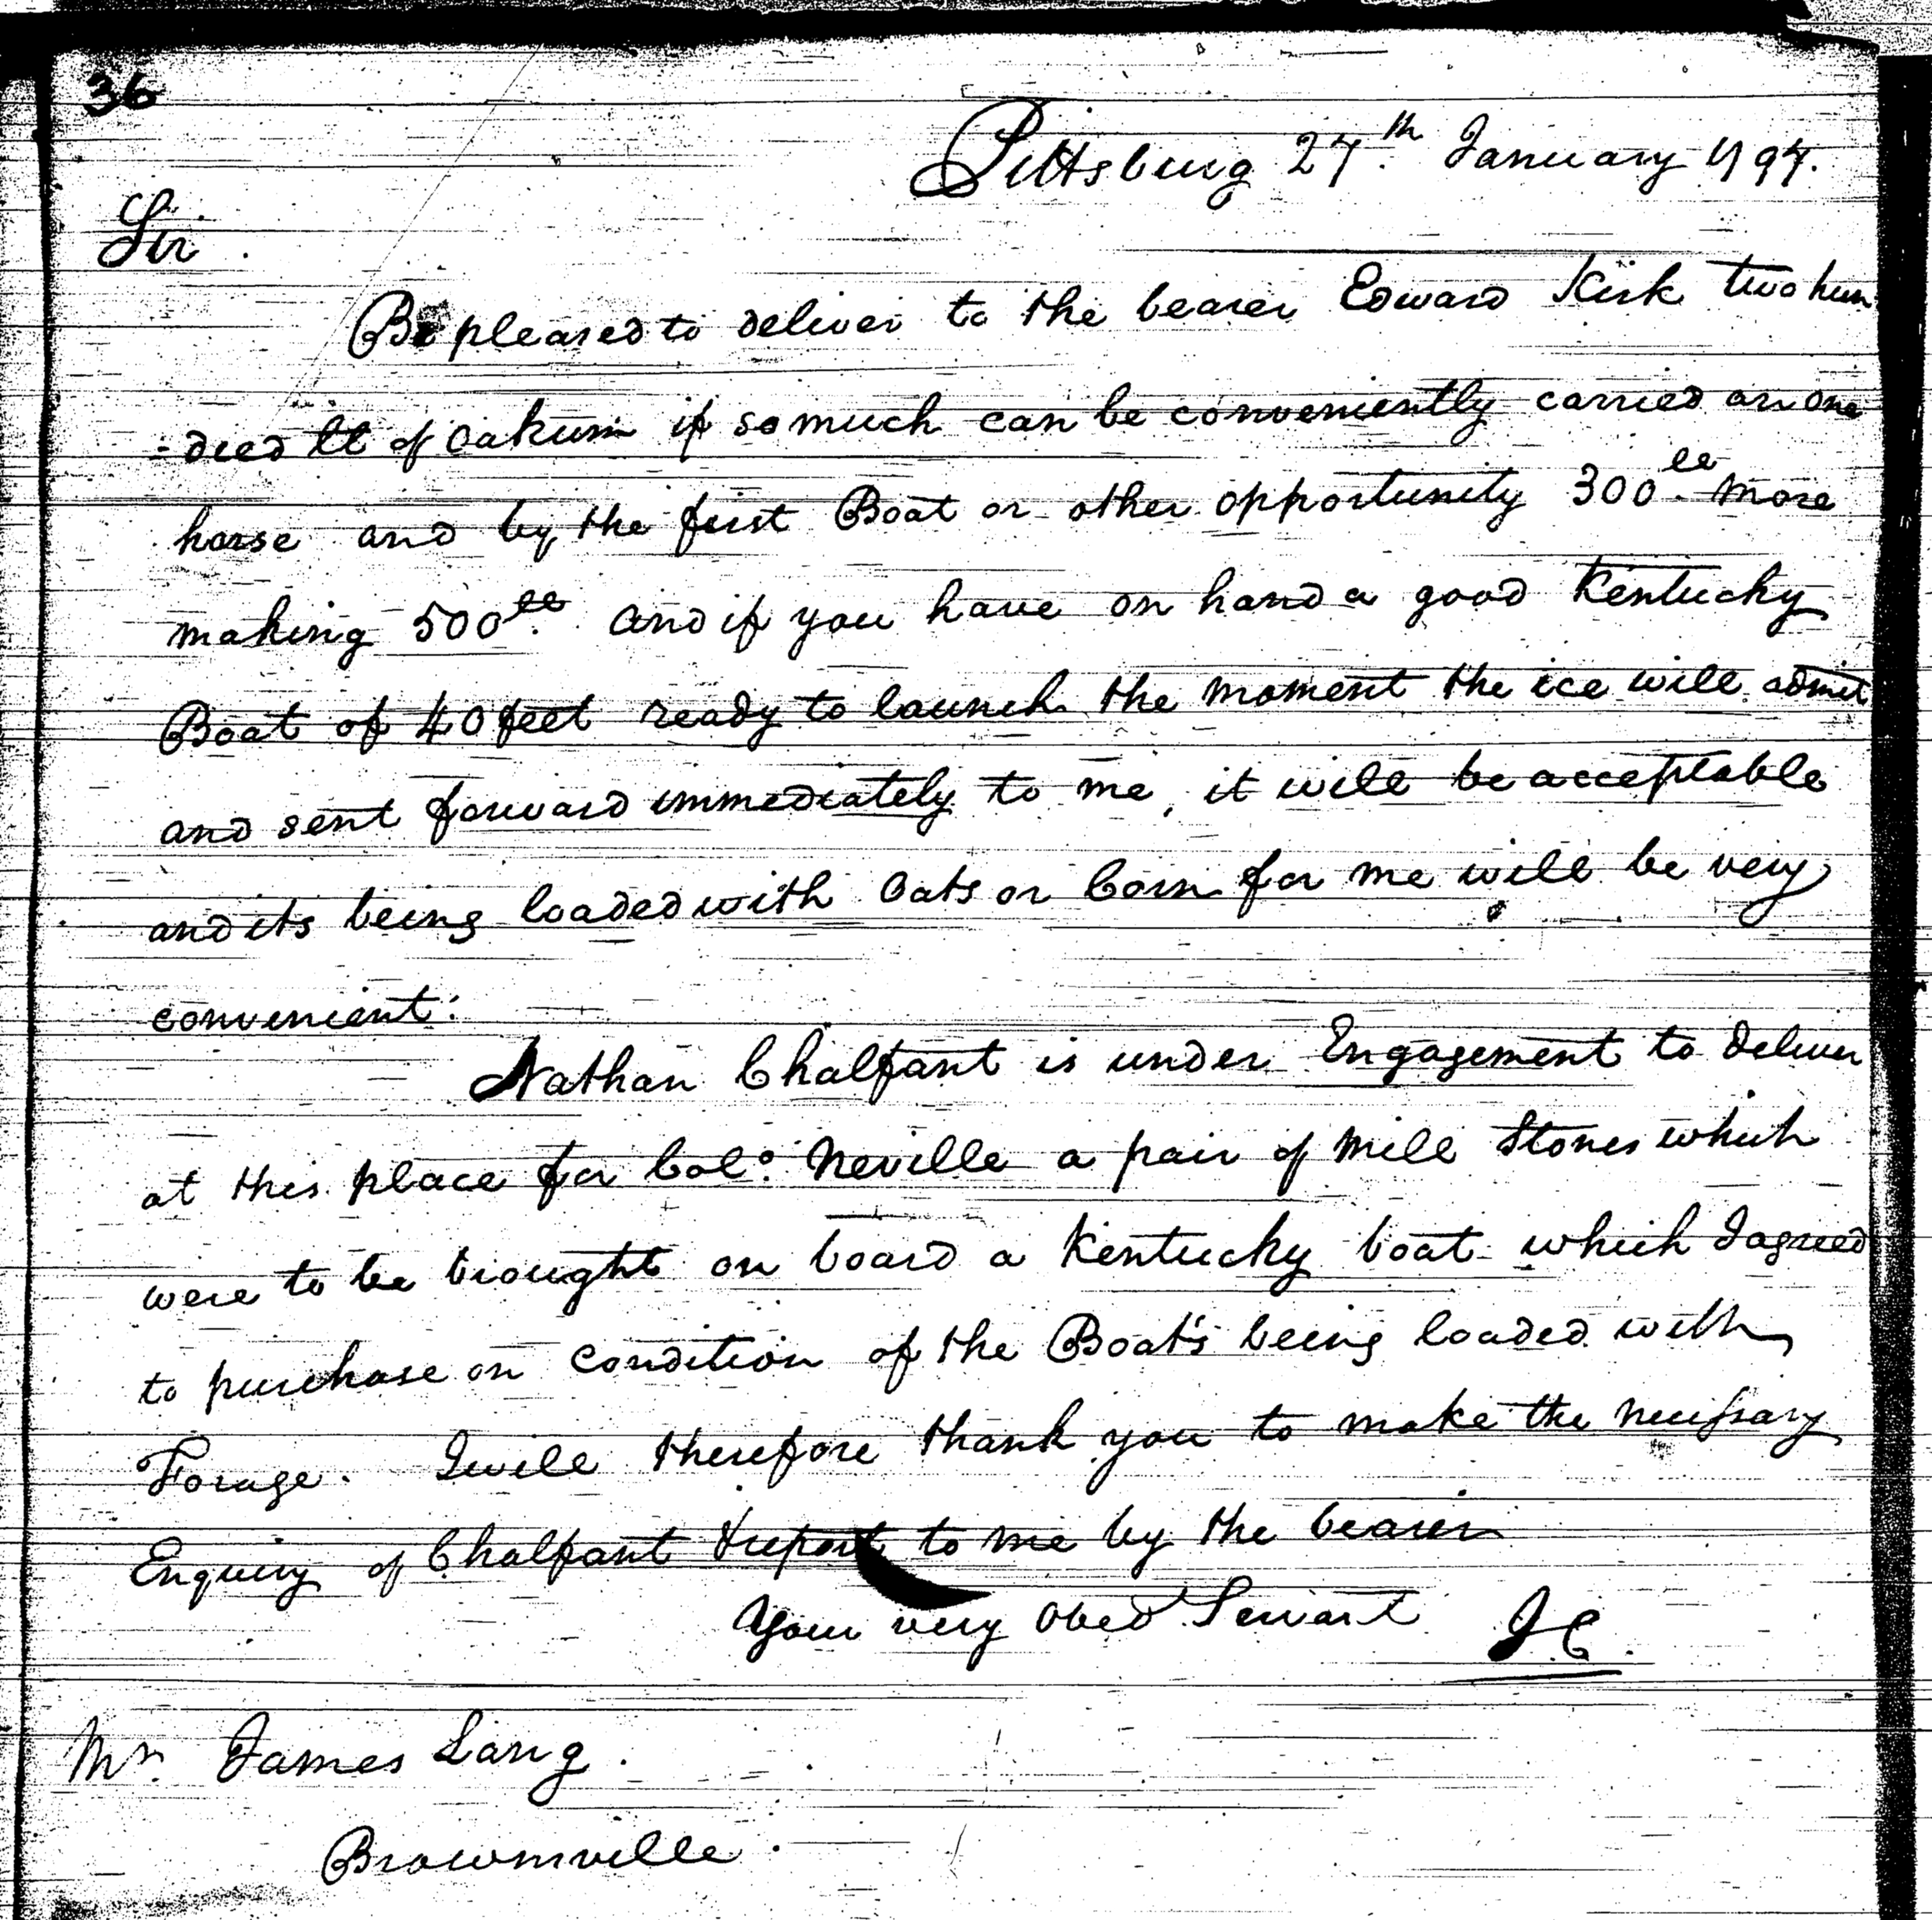 36
Pittsburg 27.th January 1794.
Sir.
Be pleased to deliver to the bearer Edward Kirk two hun
-dred lb of Oakum if so much can be conveniently carried on one
horse and by the first Boat or other opportunity 300.lb more
making 500.lb and if you have on hand a good Kentucky
Boat of 40 feet ready to launch the moment the ice will admit
and sent forward immediately to me, it will be acceptable
and its being loaded with Oats or Corn for me will be very
convenient:
Nathan Chalfant is under Engagement to deliver
at this place for Colo. Neville a pair of Mill Stones which
were to be brought on board a Kentucky boat which I agreed
to purchase on condition of the Boat's being loaded with
Forage. I will therefore thank you to make the necessary
Enquiry of Chalfant & report to me by the bearer
Your very Obed Servant I.C.
Mr. James Lang.
Brownville.